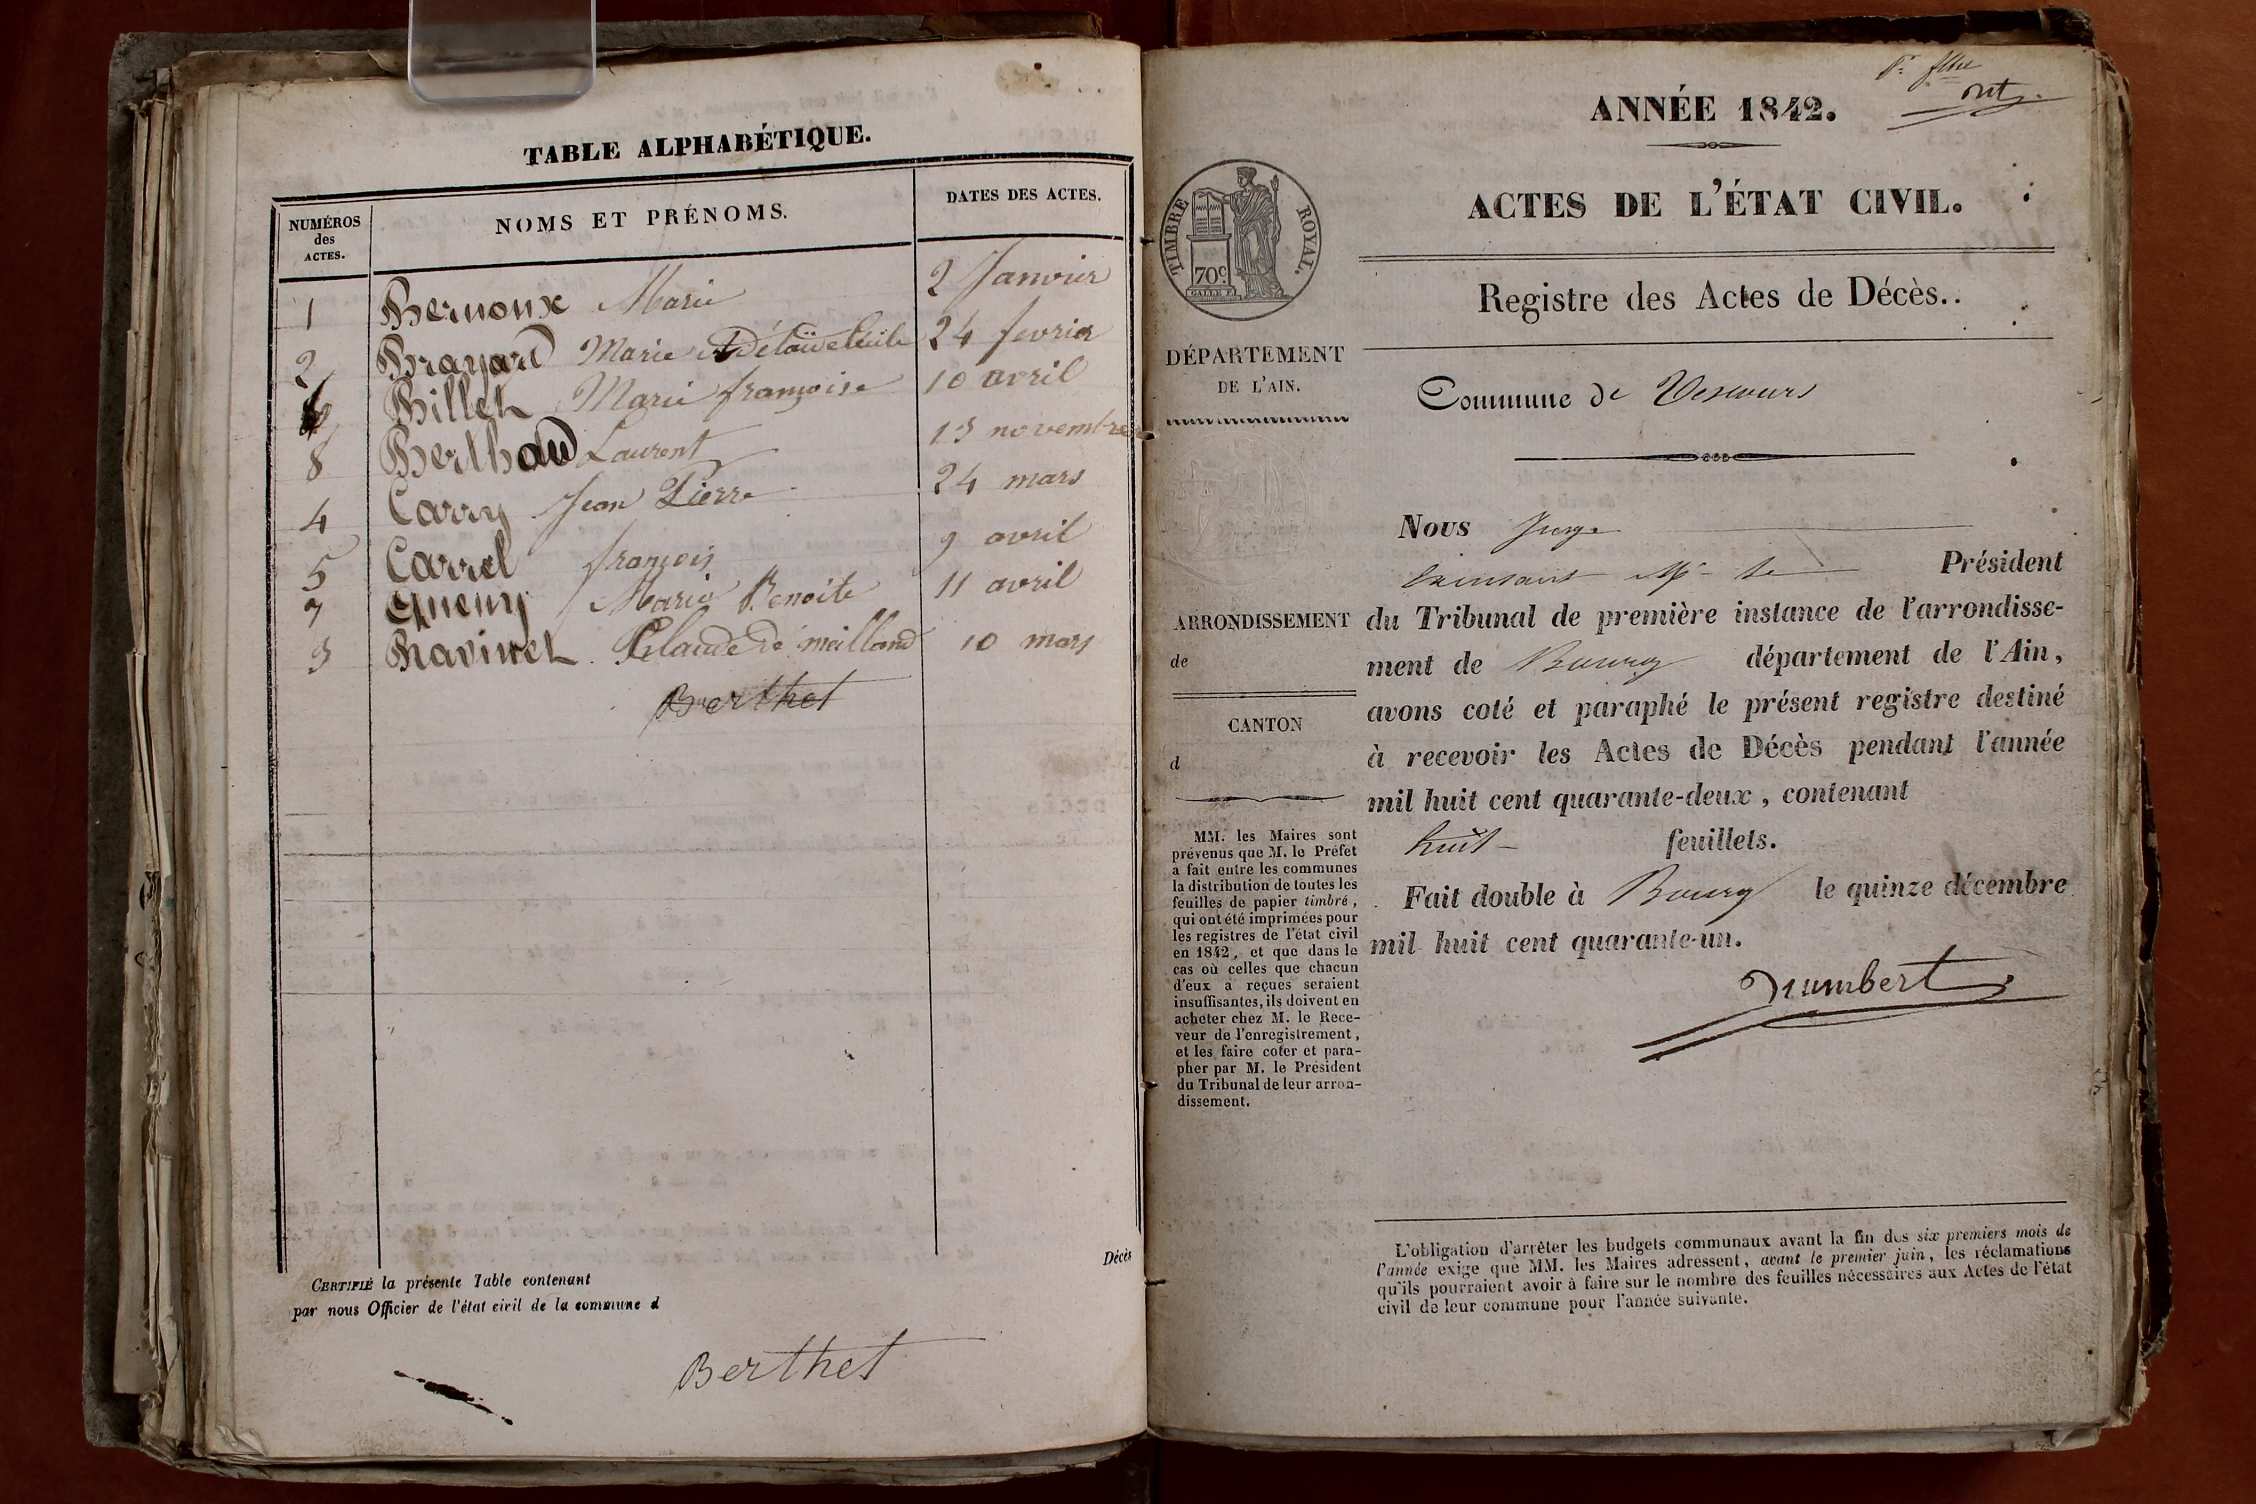 TABLE ALPHABÉTIQUE.
NUMÉROS des ACTES.
NOMS ET PRÉNOMS.
DATES DES ACTES.
1 Bernoux Marie 2 Janvier
2 Brayard Marie Adélaïde 24 fevrier
Billet Marie françoise 10 avril
8 Berthaud Laurent 13 novembre
4 Carry Jean Pierre 24 mars
5 Carrel françois 9 avril
7 Marie Benoite 11 avril
3 Ravinet Claude 10 mars
Berthet
Décès
CERTIFIÉ la présente Table contenant
par nous Officier de l'état civil de la commune d
Berthet
ANNÉE 1842.
ACTES DE L'ÉTAT CIVIL.
TIMBRE ROYAL.
70c.
Registre des Actes de Décès..
DÉPARTEMENT
DE L'AIN.
Commune de Vescours
Nous Juge
Président
ARRONDISSEMENT
de
CANTON
d
du Tribunal de première instance de l'arrondisse-
ment de Bourg département de l'Ain,
avons coté et paraphé le présent registre destiné
à recevoir les Actes de Décès pendant l'année
mil huit cent quarante-deux, contenant
huit feuillets.
Fait double à Bourg le quinze décembre
mil huit cent quarante-un.
MM. les Maires sont
prévenus que M. le Préfet
a fait entre les communes
la distribution de toutes les
feuilles de papier timbré,
qui ont été imprimées pour
les registres de l'état civil
en 1842, et que dans le
cas où celles que chacun
d'eux a reçues seraient
insuffisantes, ils doivent en
acheter chez M. le Rece-
veur de l'enregistrement,
et les faire coter et para-
pher par M. le Président
du Tribunal de leur arron-
dissement.
L'obligation d'arrêter les budgets communaux avant la fin des six premiers mois de
l'année exige que MM. les Maires adressent, avant le premier juin, les réclamations
qu'ils pourraient avoir à faire sur le nombre des feuilles nécessaires aux Actes de l'état
civil de leur commune pour l'année suivante.